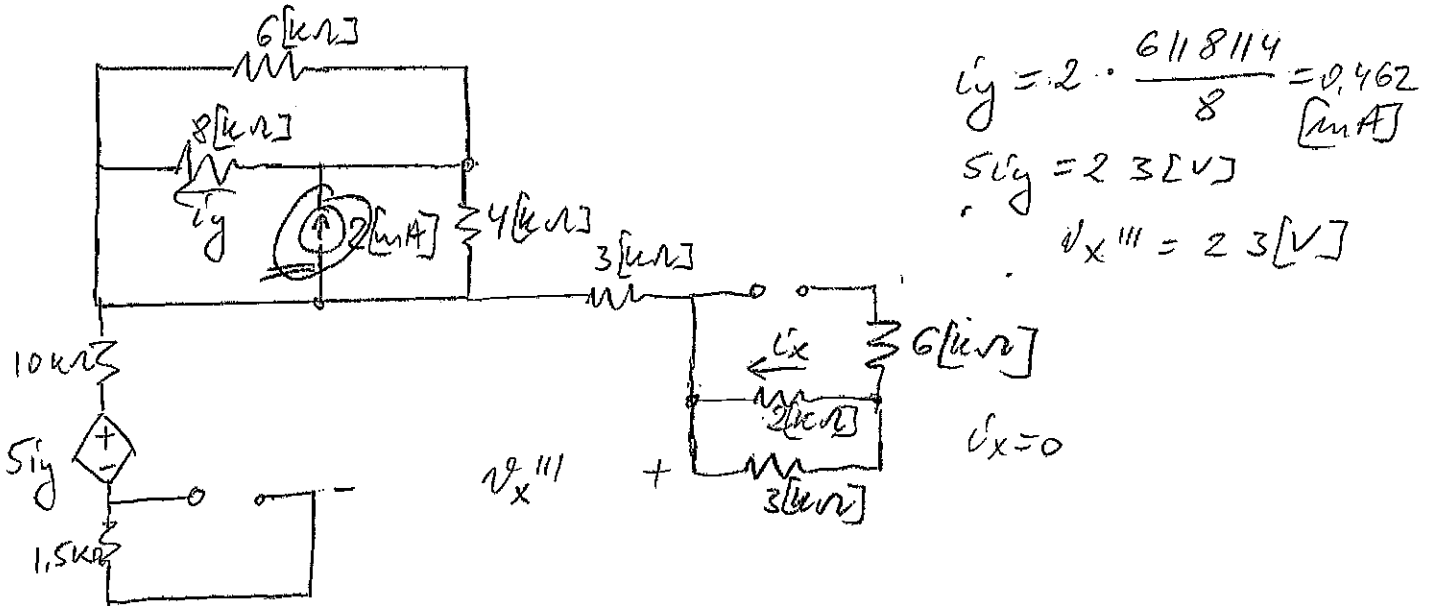 6[kΩ]
8[kΩ]
iy
2[mA]
4[kΩ]
3[kΩ]
ix
6[kΩ]
2[kΩ]
3[kΩ]
ix=0
10kΩ
+
-
5iy
1,5kΩ
-
vx''' +
iy = 2 · 6||8||4 / 8 = 0,462 [mA]
5iy = 2 3[V]
vx''' = 2 3[V]